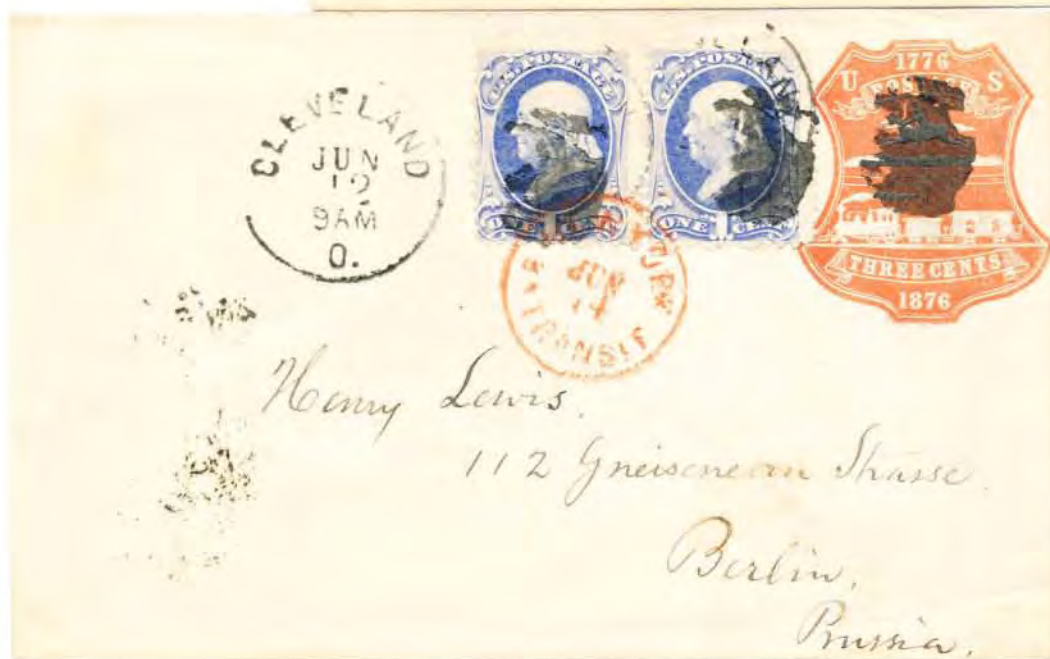 CLEVELAND
JUN
12
9AM
O.
U.S. POSTAGE
ONE 1 CENT
U.S. POSTAGE
ONE 1 CENT
1776
U S
POSTAGE
THREE CENTS
1876
NEW YORK
JUN
14
TRANSIT
Henry Lewis.
112 Gneisenean Strasse.
Berlin,
Prussia.